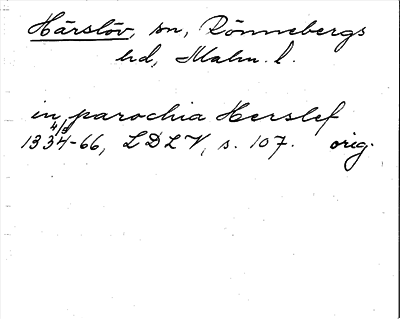 Härslöv, sn, Rönnebergs
hd, Malm. l.
in parochia Herslef
4/3
1334-66, LDLV, s. 107. orig.